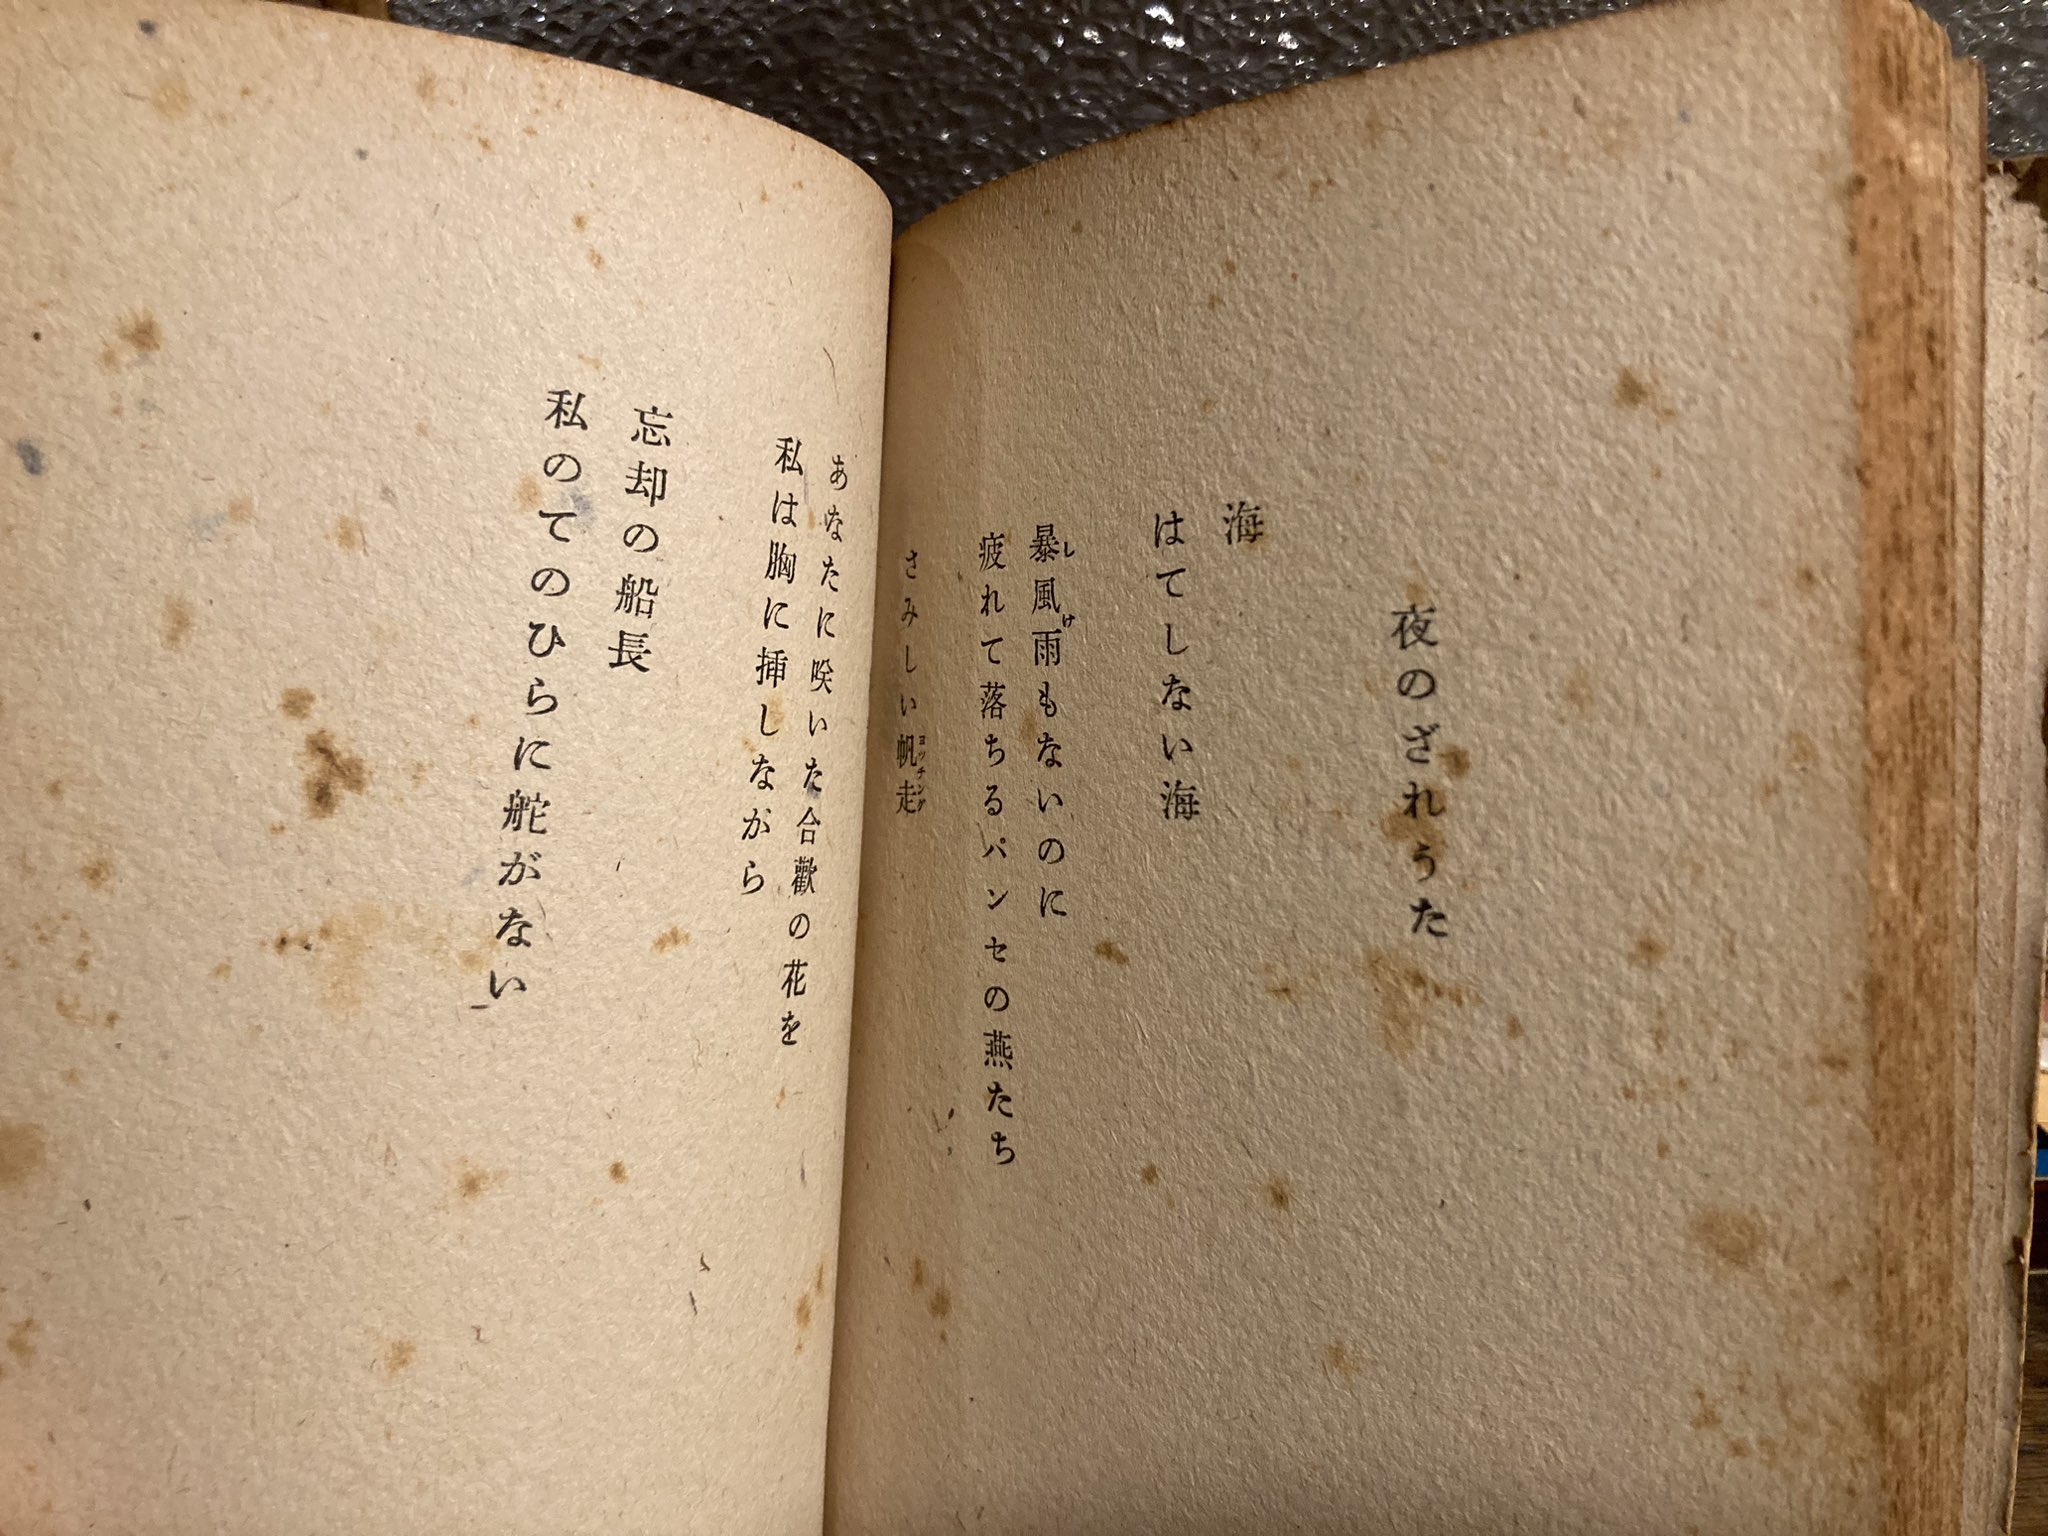 夜のざれうた
海
はてしない海
暴風雨もないのに
疲れて落ちるパンセの燕たち
さみしい帆走
あなたに咲いた合歡の花を
私は胸に挿しながら
忘却の船長
私のてのひらに舵がない